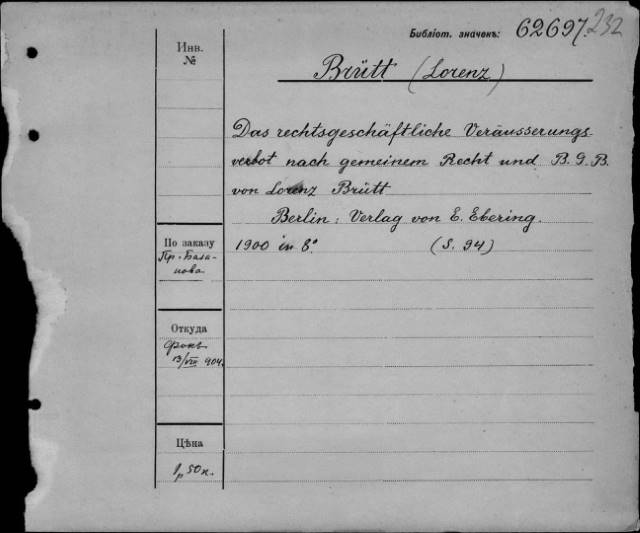 Библіот. значекъ: 62697.232
Инв.
№
Brütt (Lorenz)
Das rechtsgeschäftliche Veräusserungs-
verbot nach gemeinem Recht und B. G. B.
von Lorenz Brütt
Berlin: Verlag von E. Ebering.
1900 in 8°. (S. 94)
По заказу
Пр. База-
нова
Откуда
Фокъ
13/VIII 904.
Цѣна
1 р 50 к.